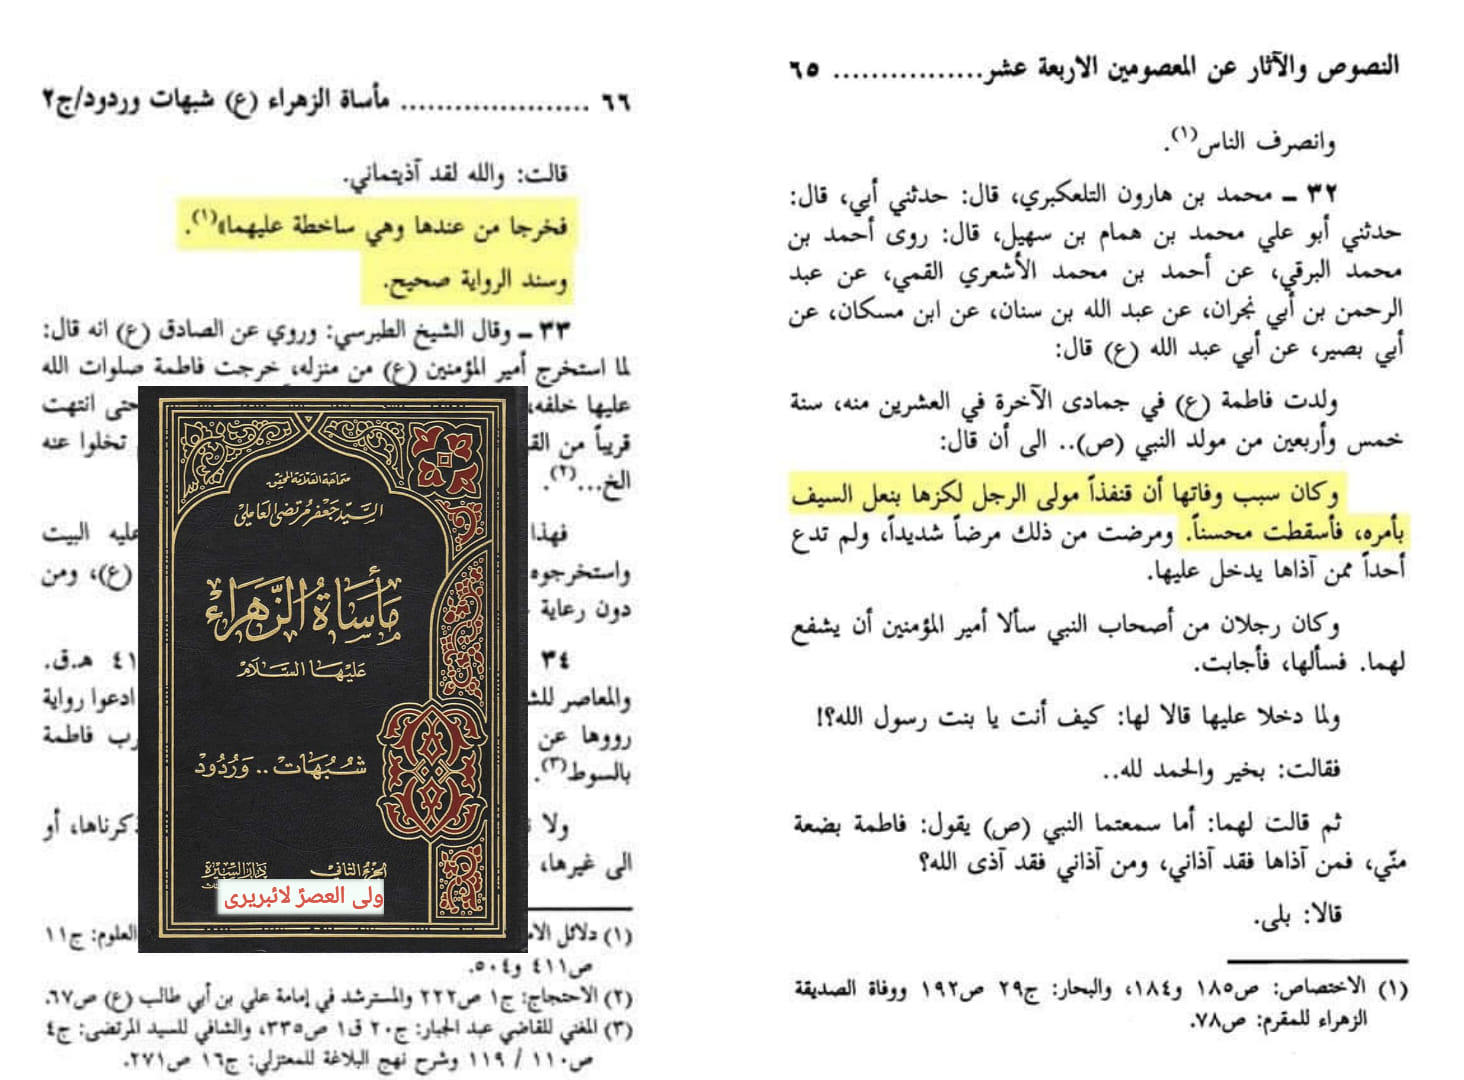 النصوص والآثار عن المعصومين الاربعة عشر................ ٦٥
وانصرف الناس(١).
٣٢ ــ محمد بن هارون التلعكبري، قال: حدثني أبي، قال:
حدثني أبو علي محمد بن همام بن سهيل، قال: روى أحمد بن
محمد البرقي، عن أحمد بن محمد الأشعري القمي، عن عبد
الرحمن بن أبي نجران، عن عبد الله بن سنان، عن ابن مسكان، عن
أبي بصير، عن أبي عبد الله (ع) قال:
ولدت فاطمة (ع) في جمادى الآخرة في العشرين منه، سنة
خمس وأربعين من مولد النبي (ص).. الى أن قال:
وكان سبب وفاتها أن قنفذاً مولى الرجل لكزها بنعل السيف
بأمره، فأسقطت محسناً. ومرضت من ذلك مرضاً شديداً، ولم تدع
أحداً ممن آذاها يدخل عليها.
وكان رجلان من أصحاب النبي سألا أمير المؤمنين أن يشفع
لهما. فسألها، فأجابت.
ولما دخلا عليها قالا لها: كيف أنت يا بنت رسول الله؟!
فقالت: بخير والحمد لله..
ثم قالت لهما: أما سمعتما النبي (ص) يقول: فاطمة بضعة
منّي، فمن آذاها فقد آذاني، ومن آذاني فقد آذى الله؟
قالا: بلى.
(١) الاختصاص: ص١٨٥ و١٨٤، والبحار: ج٢٩ ص١٩٢ ووفاة الصديقة
الزهراء للمقرم: ص٧٨.
٦٦ ..................... مأساة الزهراء (ع) شبهات وردود/ج٢
قالت: والله لقد آذيتماني.
فخرجا من عندها وهي ساخطة عليهما»(١).
وسند الرواية صحيح.
٣٣ ــ وقال الشيخ الطبرسي: وروي عن الصادق (ع) انه قال:
لما استخرج أمير المؤمنين (ع) من منزله، خرجت فاطمة صلوات الله
عليها خلفه، حتى انتهت
قريباً من تخلوا عنه
الخ...(٢).
فهذا عليه البيت
واستخرجوه (ع)، ومن
دون رعاية
٣٤ هـ.ق.
والمعاصر ادعوا رواية
رووها عن فاطمة
بالسوط(٣).
ولا ذكرناها، أو
الى غيرها،
(١) دلائل العلوم: ج١١
ص٤١١ و٥٠٤.
(٢) الاحتجاج: ج١ ص٢٢٢ والمسترشد في إمامة علي بن أبي طالب (ع) ص٦٧.
(٣) المغني للقاضي عبد الجبار: ج٢٠ ق١ ص٣٣٥، والشافي للسيد المرتضى: ج٤
ص١١٠ / ١١٩ وشرح نهج البلاغة للمعتزلي: ج١٦ ص٢٧١.
سماحة العلامة المحقق
السيد جعفر مرتضى العاملي
مأساة الزهراء
عليها السلام
شبهات .. وردود
الجزء الثاني
دار السيرة
ولی العصرؑ لائبریری